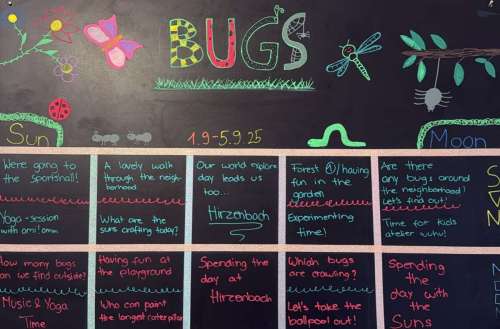 BUGS
Sun
1.9-5.9.25
Moon
We're going to
the Sportshall!
Yoga-session
with omi! omm
A lovely walk
through the neigh-
borhood
What are the
suns crafting today?
Our world explorer
day leads us
too...
Hirzenbach
Forest ①/having
fun in the
garden
Experimenting
time!
Are there
any bugs around
the neighborhood?
Let's find out!
Time for kids
atelier wuhu!
How many bugs
can we find outside?
Music & Yoga
Time
Having fun at
the playground
Who can paint
the longest caterpillar
Spending the
day at
Hirzenbach
Which bugs
are crawling?
Let's take the
ballpool out!
Spending
the day
with the
Suns